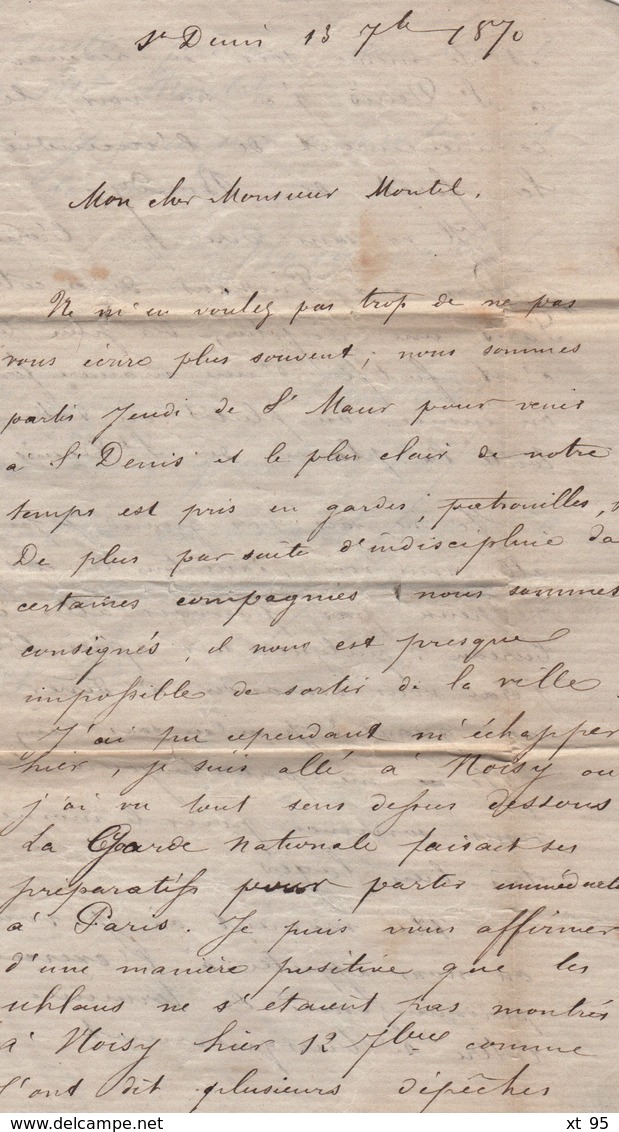 St Denis 13 7bre 1870
Mon cher Monsieur Montel.
Ne m'en voulez pas trop de ne pas
vous écrire plus souvent; nous sommes
partis Jeudi de St Maur pour venir
à St Denis et le plus clair de notre
temps est pris en gardes, patrouilles,
De plus par suite d'indiscipline da
certaines compagnies nous sommes
consignés, il nous est presque
impossible de sortir de la ville.
J'ai pu cependant m'échapper
hier, je suis allé à Noisy ou
j'ai vu tout sens dessus dessous
La Garde Nationale faisait ses
préparatifs pour partir immédiate
à Paris. Je puis vous affirmer
d'une manière positive que les
uhlans ne s'étaient pas montrés
à Noisy hier 12 7bre comme
l'ont dit plusieurs dépêches
© delcampe.net
xt 95